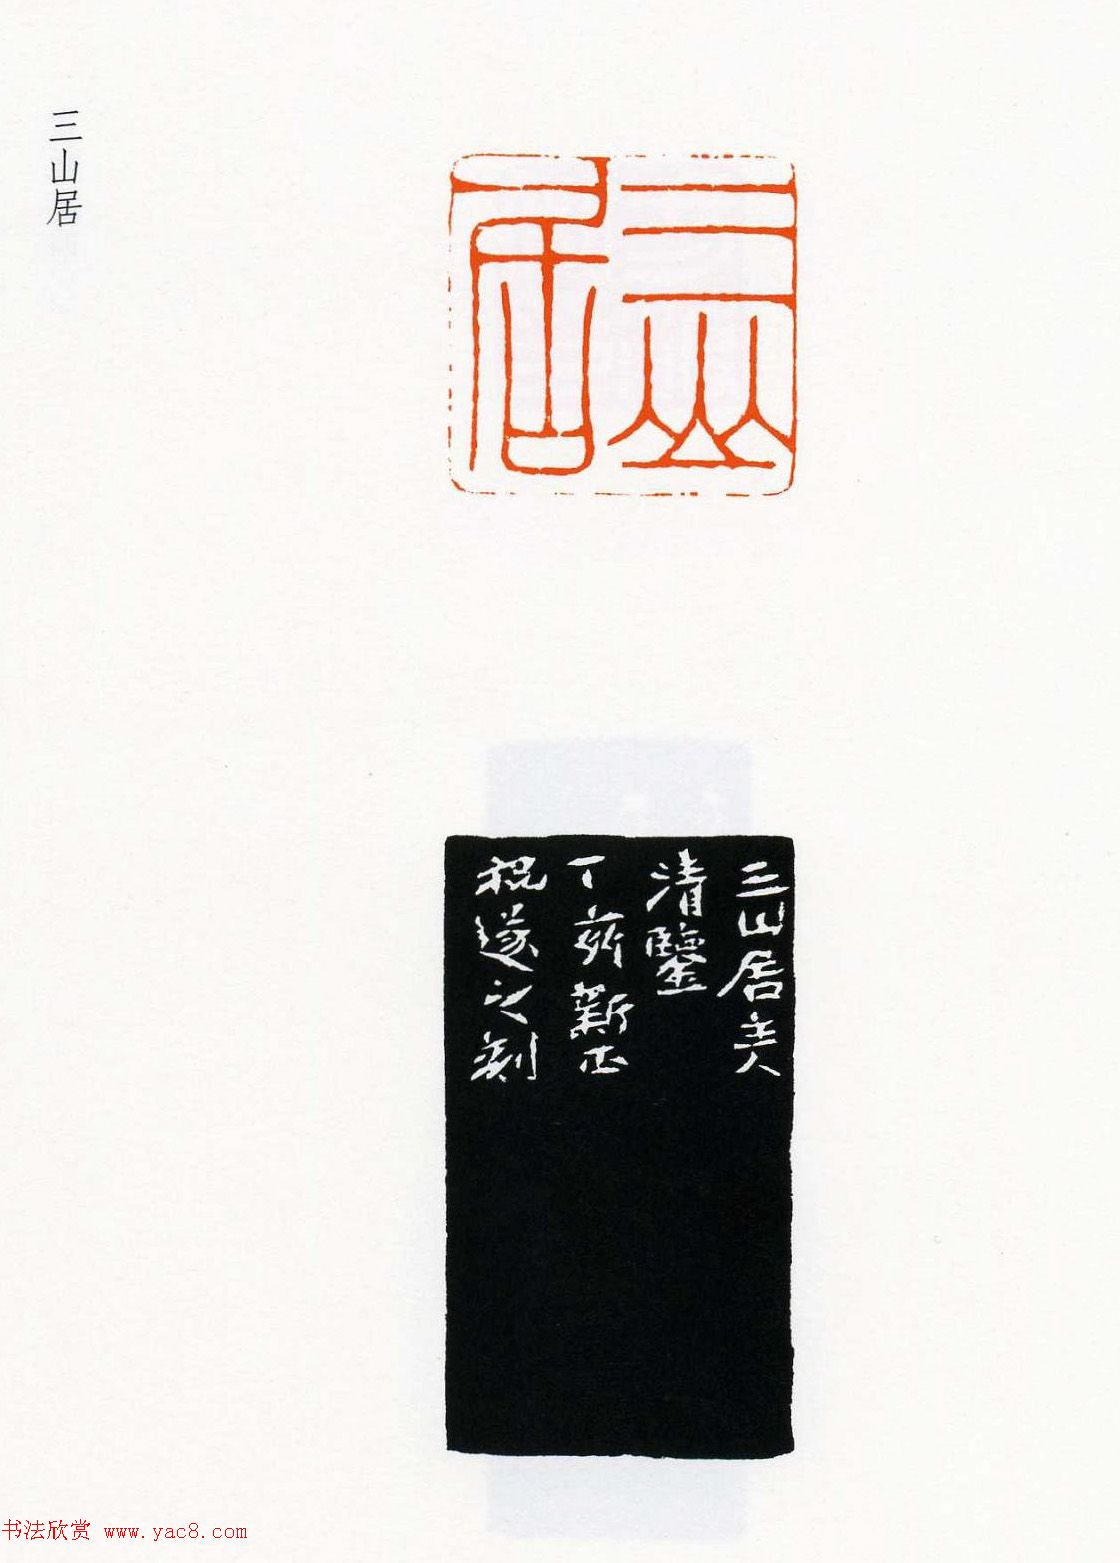 三山居
三山居
三山居主人
清鑒
丁 新正
祝遂之刻
书法欣赏 www.yac8.com